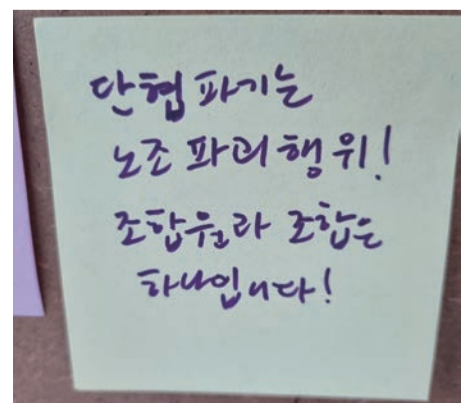 단협 파기는
노조 파괴행위!
조합원과 조합은
하나입니다!